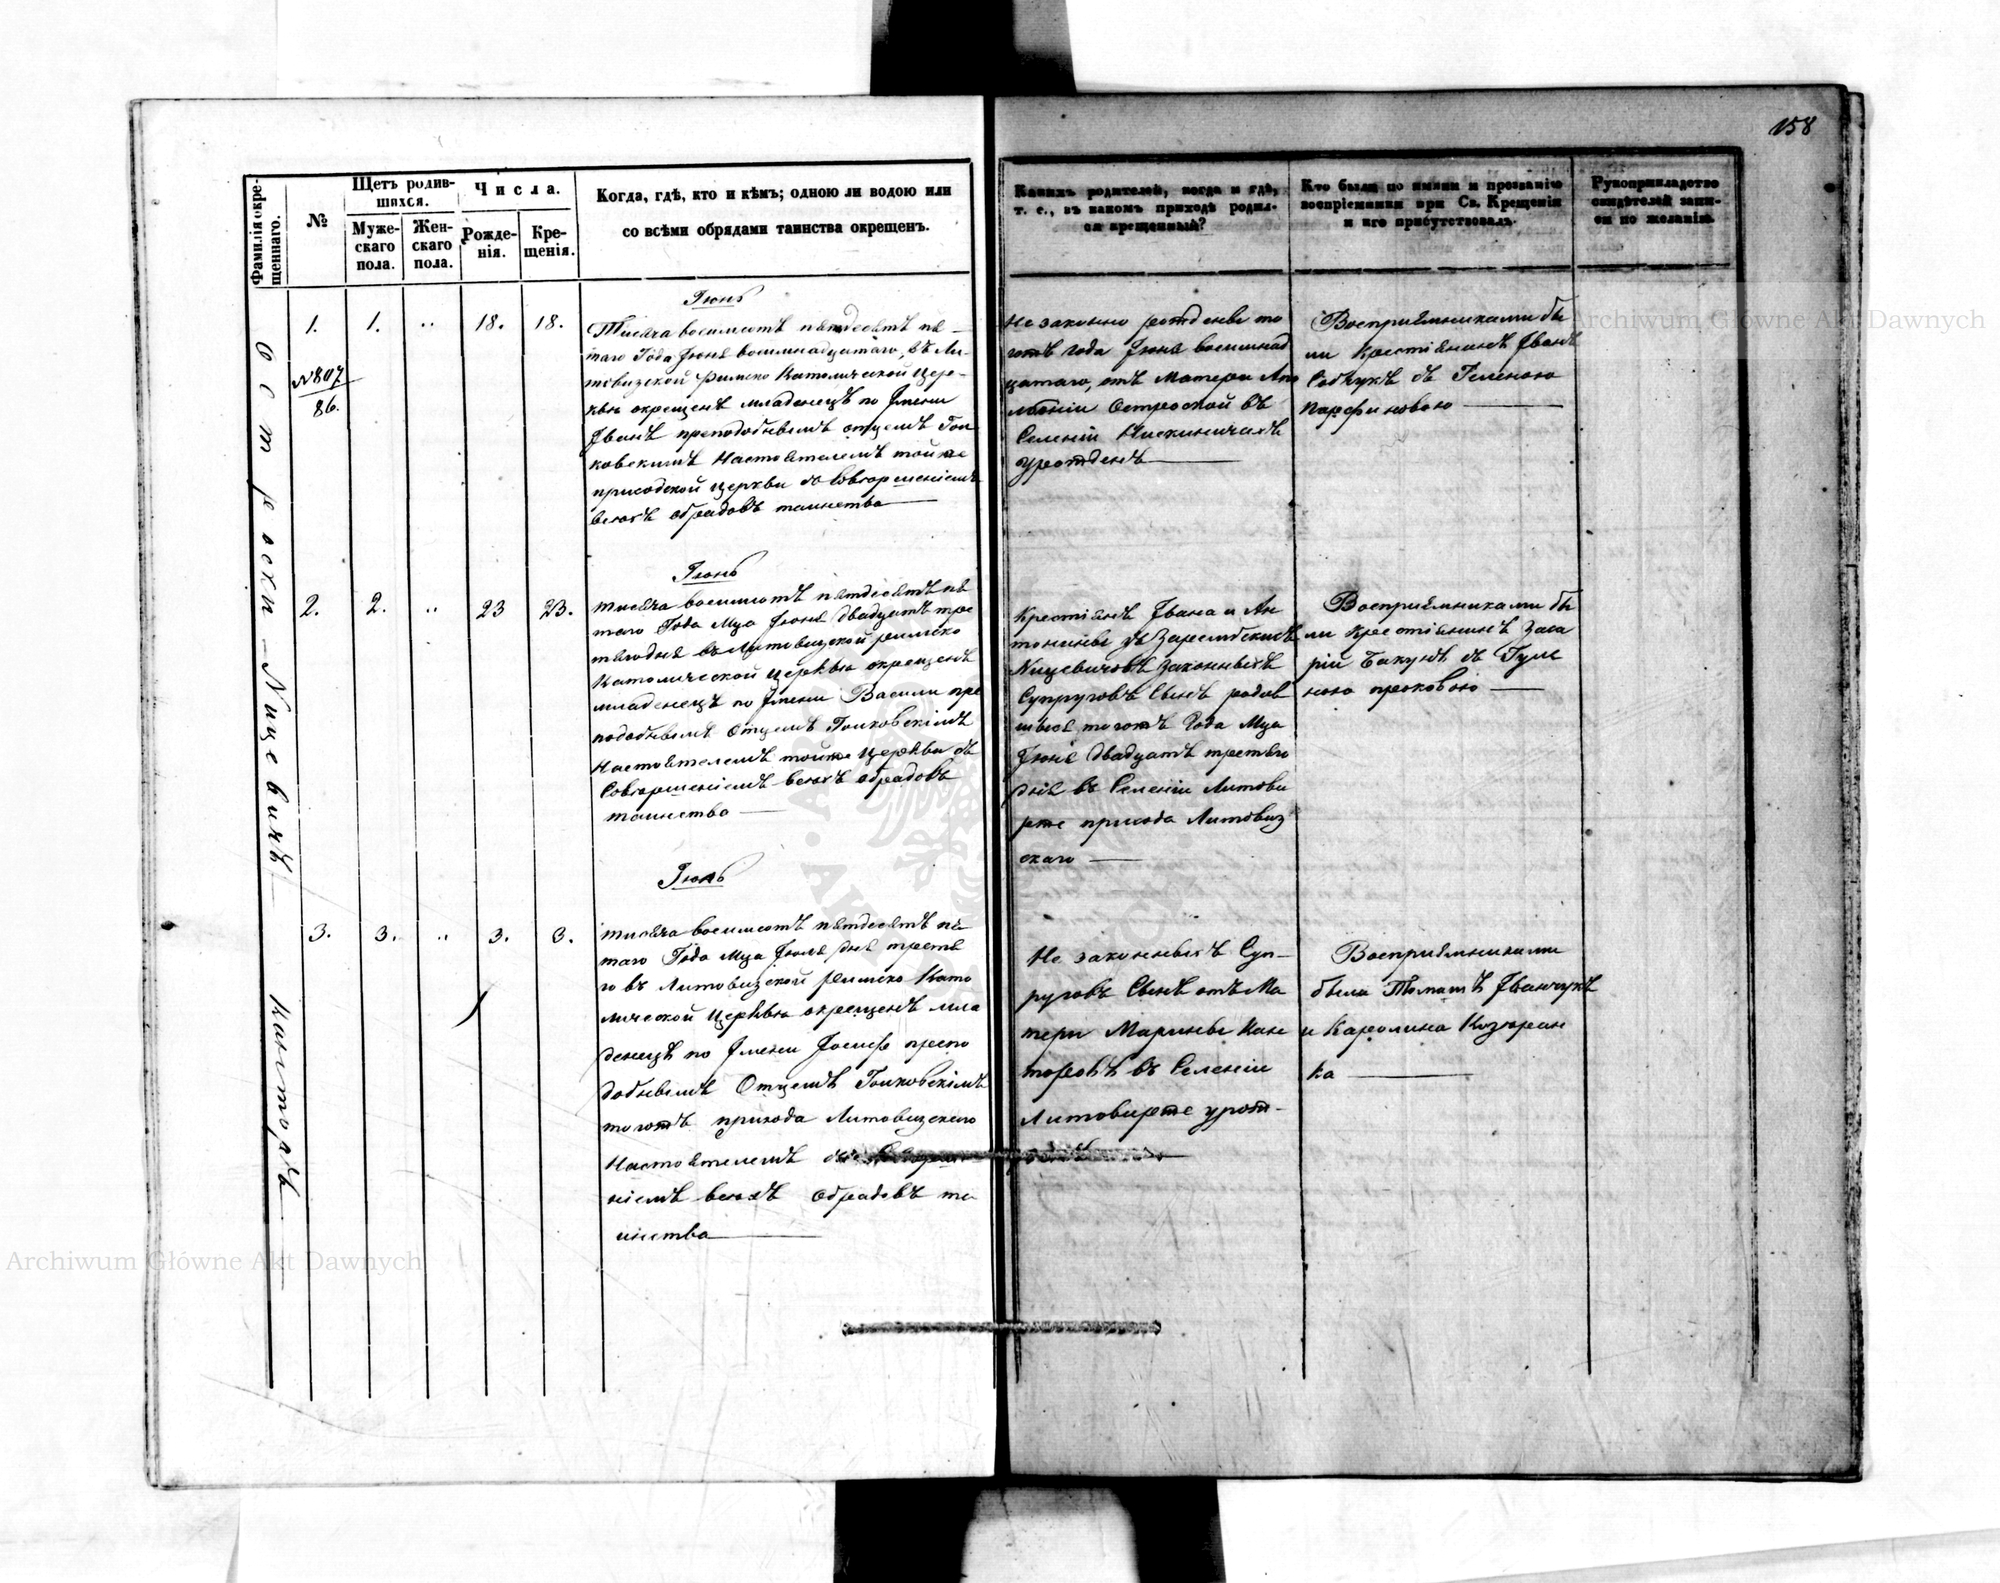 158
Фамилія окре-
щеннаго.
№
Щетъ родив-
шихся.
Муже-
скаго
пола.
Жен-
скаго
пола.
Числа.
Рожде-
нія.
Кре-
щенія.
Когда, гдѣ, кто и кѣмъ; одною ли водою или
со всѣми обрядами таинства окрещенъ.
Какихъ родителей, когда и гдѣ,
т. е., въ какомъ приходѣ родил-
ся крещенный?
Кто были по имяни и прозванію
воспріемники при Св. Крещеніи
и кто присутствовалъ.
Рукоприкладство
свидѣтелей запи-
си по желанію.
1.
№ 807
86.
1.
"
18.
18.
Іюнь
Тисяча восимсотъ пятдесятъ пя-
таго Года Іюня восимнадцатаго, въ Ли-
товизской Римско Католической Цер-
квы окрещенъ младенецъ по Імени
Іванъ преподобнымъ отцемъ Гол
ковскимъ Настоятелемъ тойже
приходской Церкви со Совершеніемъ
всехъ обрядовъ таинства
Не законно рожденъ то
готъ года Іюня восимнад
цатаго, отъ Матери Апо
лоніи Островской въ
Селеніи Нискиничахъ
урожденъ
Восприемниками бы
ли Крестіянинъ Іванъ
съ Геленою
2.
2.
"
23
23.
Іюнь
тисяча восимсотъ пятдесятъ пя
таго Года Мца Іюня двадцатъ тре
тягодня въ Литовизской римско
Католической Церквы окрещенъ
младенецъ по Імени Васили пре
подобнымъ Отцемъ Голковскімъ
Настоятелемъ тойже Церкви съ
Совершеніемъ всехъ обрадовъ
таинства
Крестіянъ Івана и Ан
тонины съ Зарембскихъ
Ницевичовъ Законныхъ
Супруговъ Сынъ родив
шыся тогожъ Года Мца
Іюня двадцатъ третяго
дня въ Селеніи Литови
рже прихода Литовиз
скаго
Восприемниками бы
ли Крестіянинъ Заха
рій Бакунъ съ Гуле
ною
3.
3.
"
3.
3.
Іюль
тисяча восимсотъ пятдесятъ пя
таго Года Мца Іюля дня третя
го въ Литовизской Римско Като
лической Церквы окрещенъ мла
денецъ по Імени Іосифъ препо
добнымъ Отцемъ Голковскімъ
тогожъ прихода Литовизскаго
Настоятелемъ
ніемъ всехъ Обрадовъ та
инства
Не законныхъ Суп-
руговъ Сынъ отъ Ма
тери Марины Кан
торовъ въ Селеніи
Литовирже урож-
Восприемниками
были Томашъ Іванчукъ
и Каролина Козюран
ка
Островски – Ницевичъ – Канторъ
Archiwum Główne Akt Dawnych
Archiwum Główne Akt Dawnych